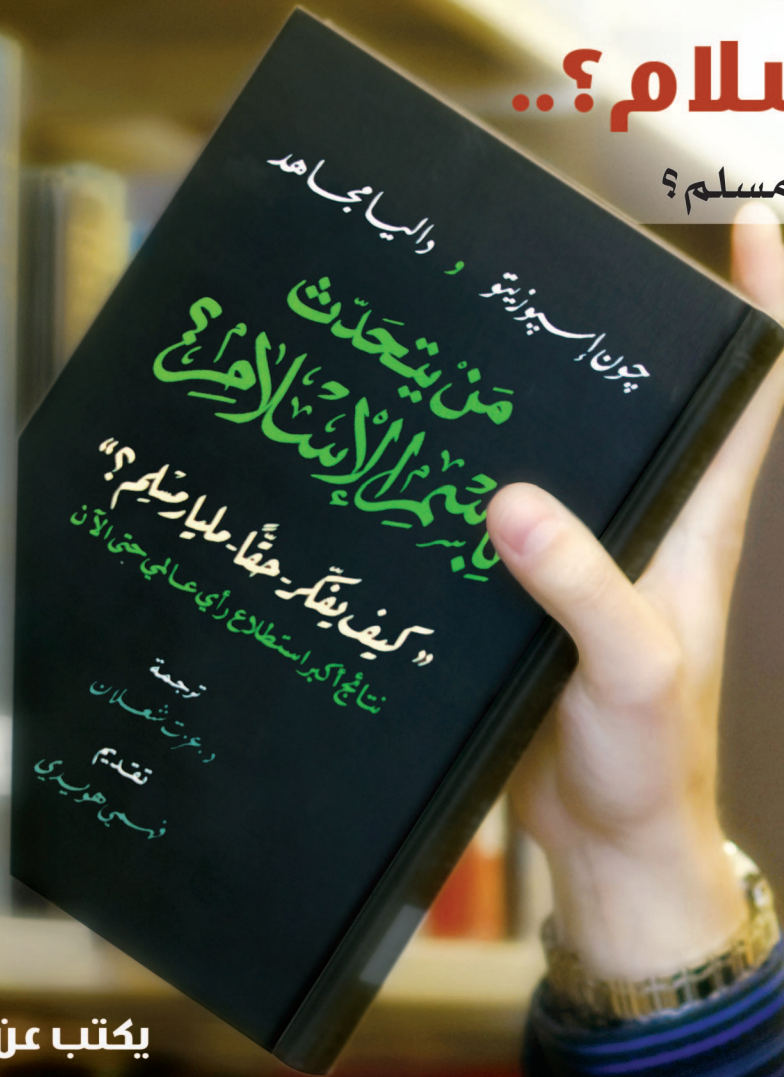 سلام؟..
مسلم؟
چون إسپوزيتو و داليا مجاهد
مَنْ يتحَدّث
بِاسْمِ الإسْلامِ؟
"كيف يفكّر - حقًّا - مليار مسلم؟"
نتائج أكبر استطلاع رأي عالمي حتى الآن
ترجمة
د. عزت شعلان
تقديم
فهمي هويدي
يكتب عن